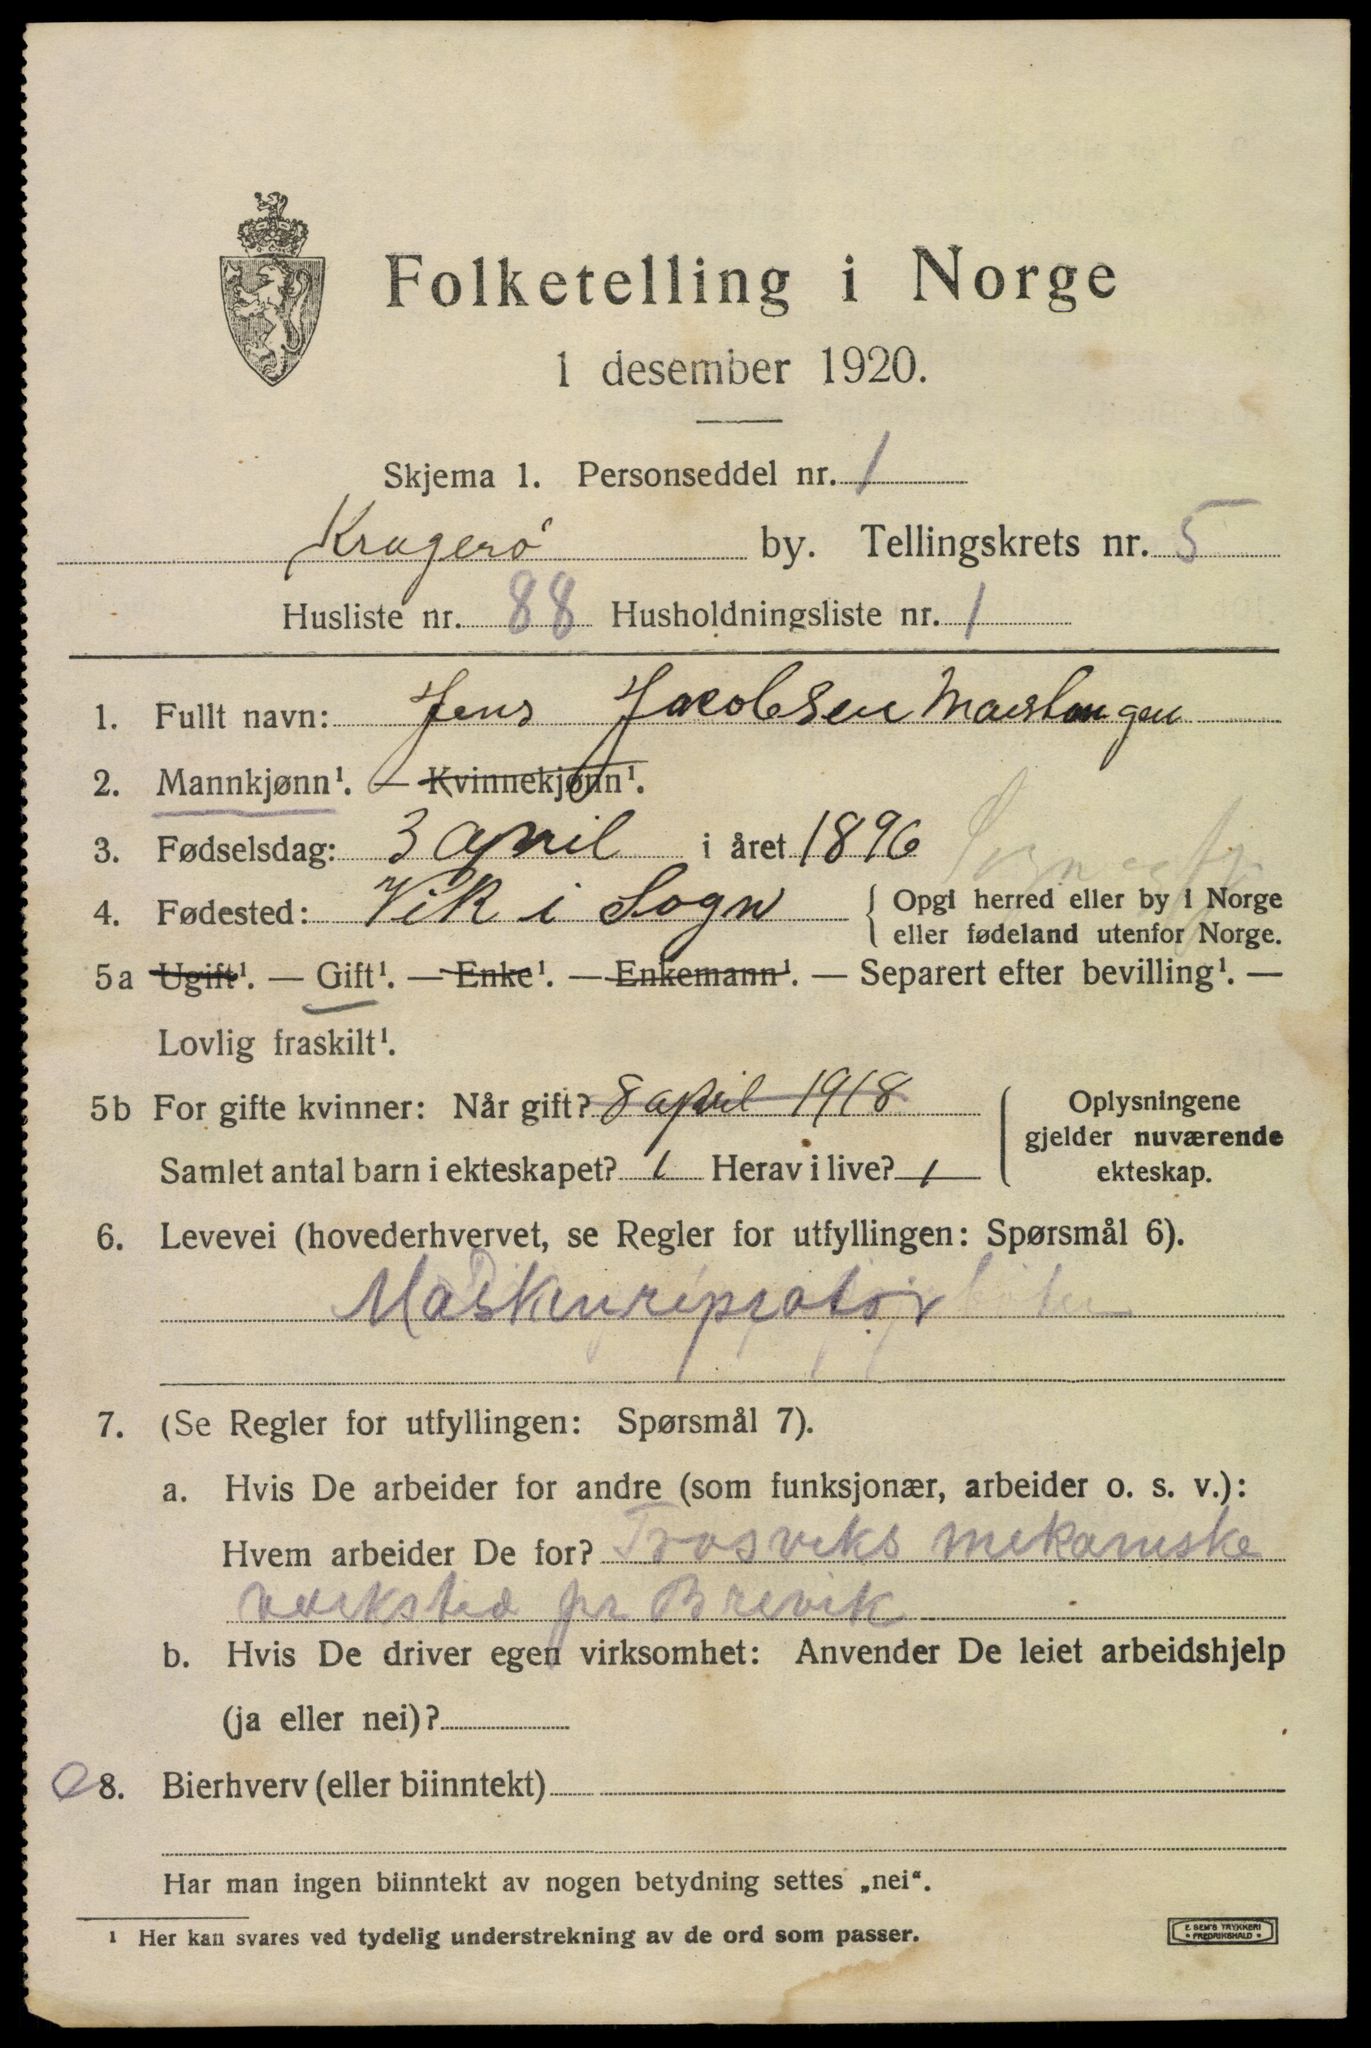 Folketelling i Norge
1 desember 1920.
Skjema 1. Personseddel nr. 1
Kragerø by. Tellingskrets nr. 5
Husliste nr. 88 Husholdningsliste nr. 1
1. Fullt navn: Jens Jacobsen
2. Mannkjønn¹. — Kvinnekjønn¹.
3. Fødselsdag: 3 april i året 1896
4. Fødested: Vik i Sogn { Opgi herred eller by i Norge
eller fødeland utenfor Norge.
5a Ugift¹. — Gift¹. — Enke¹. — Enkemann¹. — Separert efter bevilling¹. —
Lovlig fraskilt¹.
5b For gifte kvinner: Når gift? 8 april 1918 { Oplysningene
gjelder nuværende
ekteskap.
Samlet antal barn i ekteskapet? 1 Herav i live? 1
6. Levevei (hovederhvervet, se Regler for utfyllingen: Spørsmål 6).
7. (Se Regler for utfyllingen: Spørsmål 7).
a. Hvis De arbeider for andre (som funksjonær, arbeider o. s. v.):
Hvem arbeider De for? Trosviks mekaniske
verksted pr Brevik
b. Hvis De driver egen virksomhet: Anvender De leiet arbeidshjelp
(ja eller nei)?
8. Bierhverv (eller biinntekt)
Har man ingen biinntekt av nogen betydning settes „nei“.
¹ Her kan svares ved tydelig understrekning av de ord som passer.
E. SEM'S TRYKKERI
FREDRIKSHALD